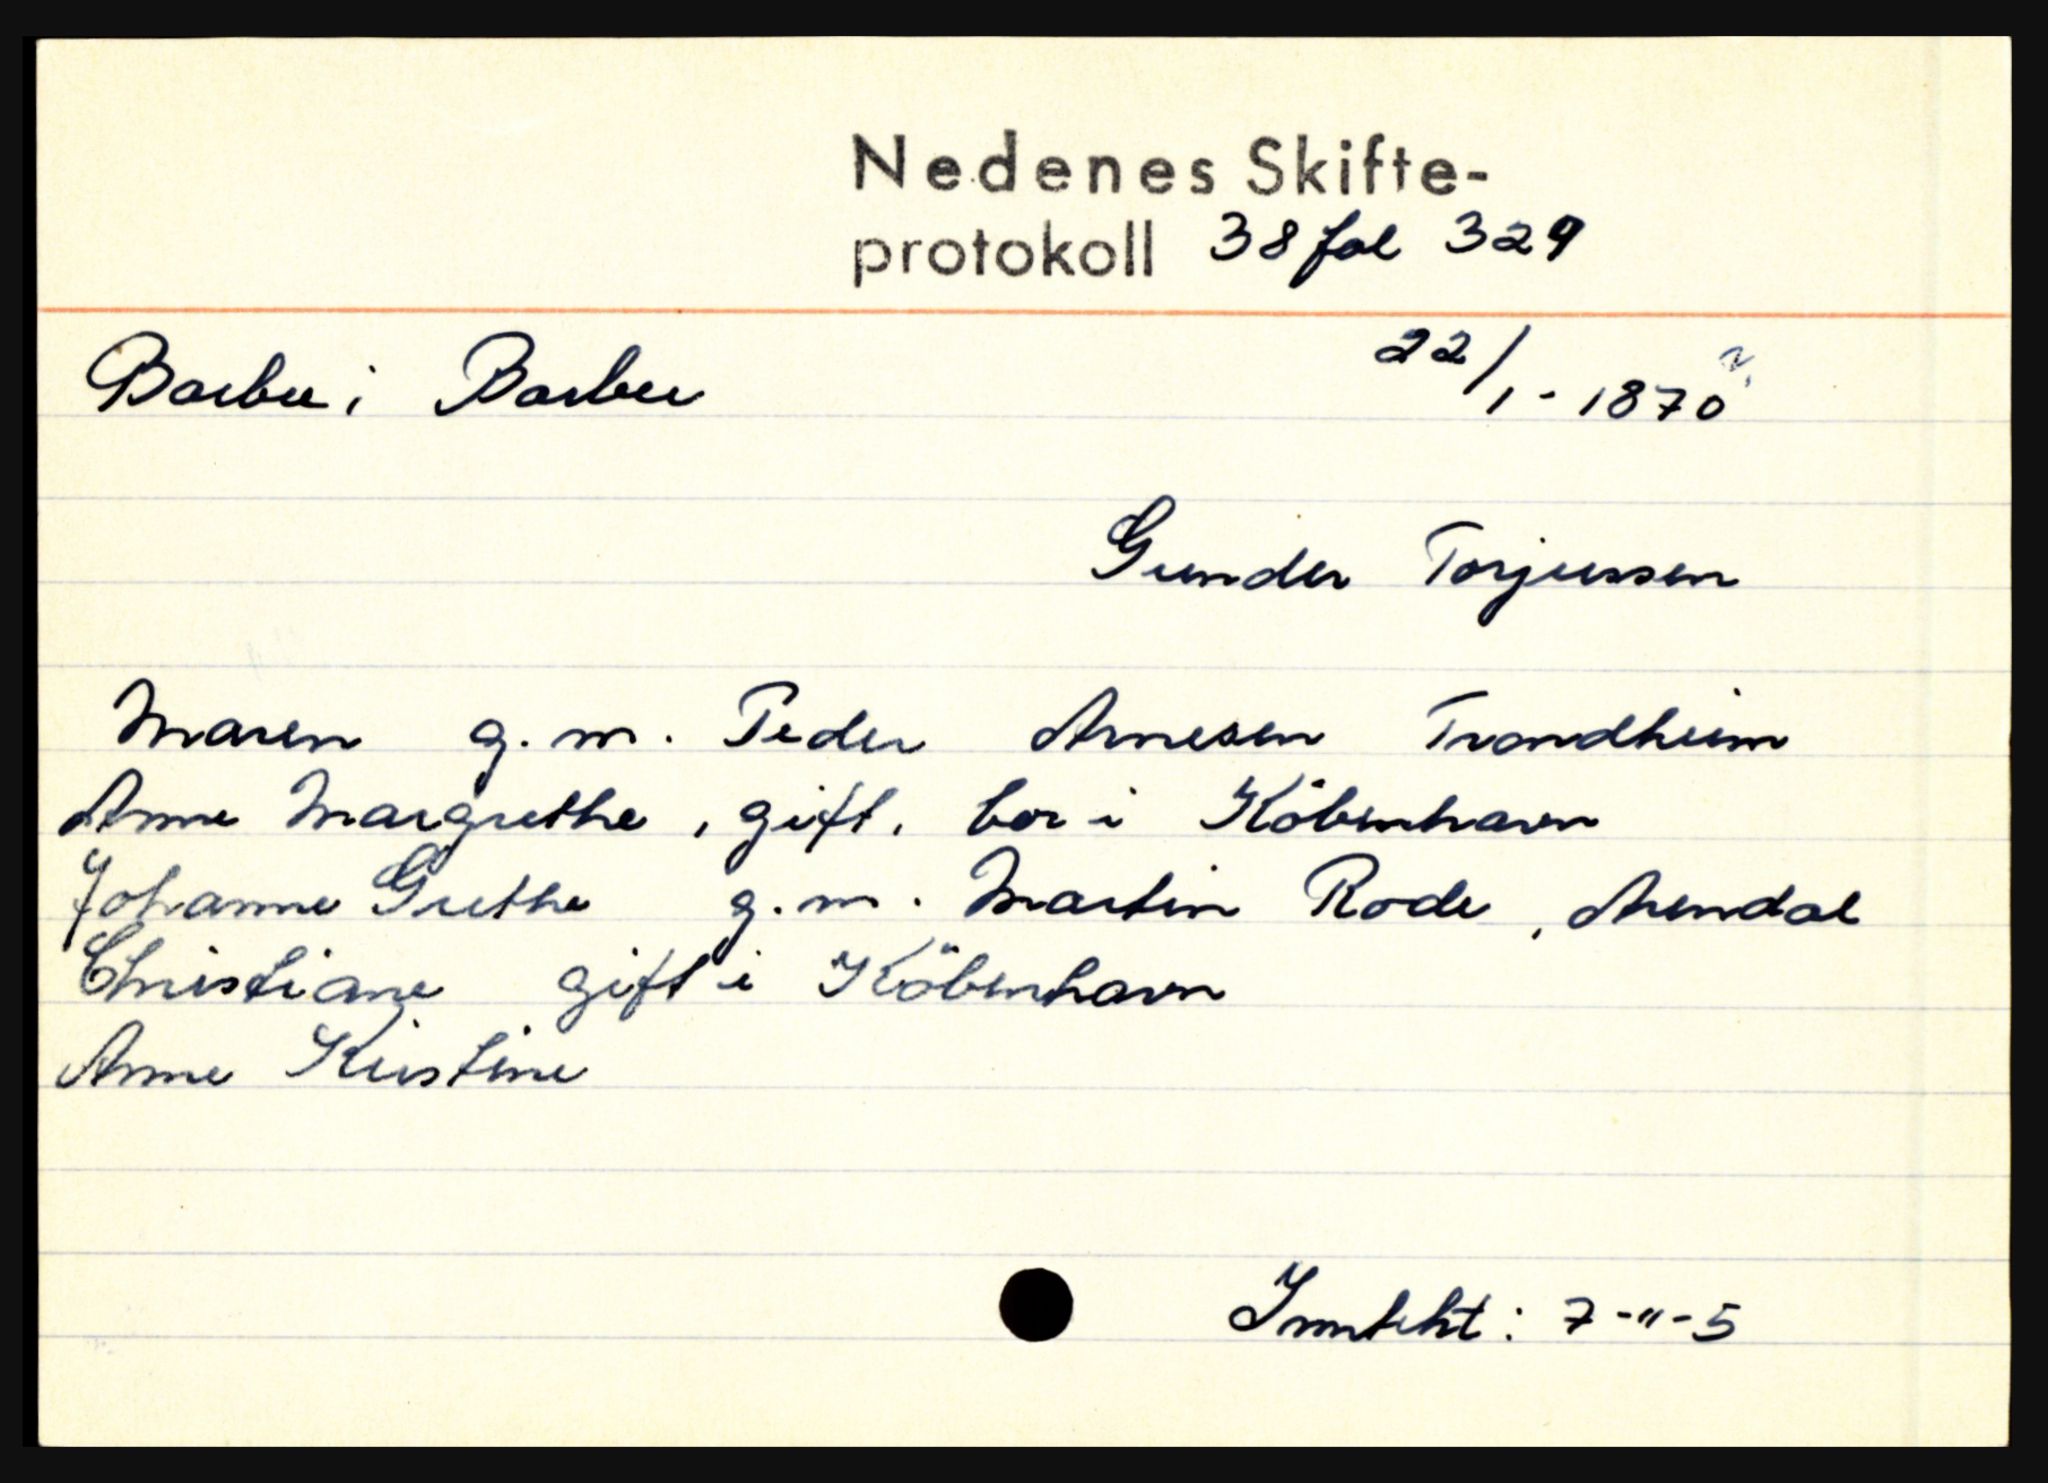 Nedenes Skifte-
protokoll 38 fol 329
Barbu i Barbu 22/1-1870
Gunder Torjussen
Maren g.m. Peder Arnesen Trondheim
Anne Margrethe, gift, bor i Köbenhavn
Johanne Grethe g.m. Martin Rode, Arendal
Christiane gift i Köbenhavn
Anne Kirstine
Inntekt: 7-"-5